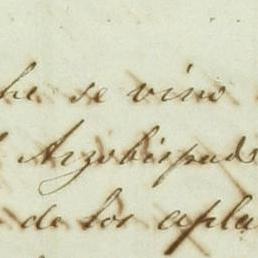 he se vino
Arzobispado
de los apla